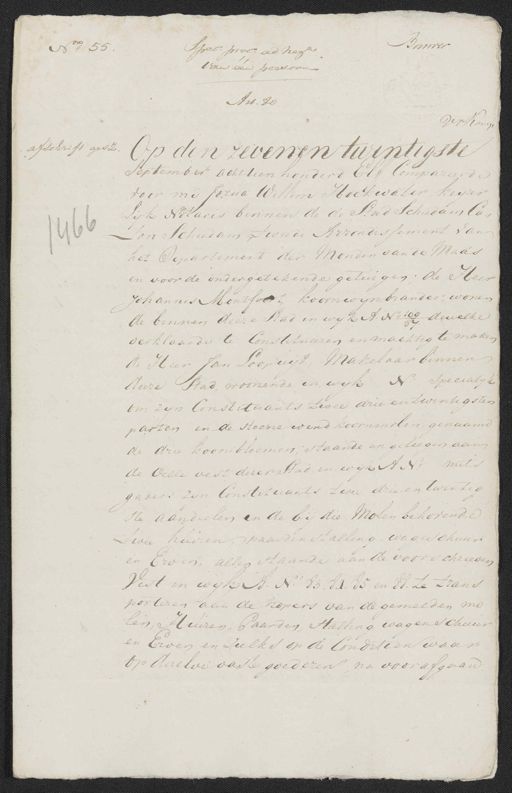 No. 55.
Spec. proc. ad neg.
van één persoon
Art. 20
afschrift gesz.
1466
Op den zevenen twintigste
September achtien honderd Elf Compareerde
voor mij Josua Willem Hoekwater Keizer
lijk Notaris binnen de Stad Schiedam Can
ton Schiedam, tweede Arrondissement van
het Departement der Monden van de Maas
en voor de ondergetekende getuigen: de Heer
Johannes Montfoort koornwynbrander, wonen
de binnen deze Stad in wyk A No dewelke
verklaarde te Constitueeren en machtig te maken
de Heer Jan Makelaar binnen
deze Stad woonende in wyk No specialyk
om zyn Constituants twee drie en twintigsten
parten in de steene wind koornmolen genaamd
de drie koornbloemen, staande en gelegen aan
de Oeste vest dezer Stad in wyk A No mits
gaders zyn Constituants twee drie en twintig
ste aandeelen in de bij die Molen behorende
twee huizen, paardenstalling, wagenschuur
en Erven, allen staande aan de voorschreven
Vest in wyk A. No 83. 84 85 en te trans
porteren aan de kopers van de gemelden mo
len, Huizen, Paarden Stalling wagenschuur
en Erven en zulks op de Conditien waar
op dezelve vaste goederen, na voorafgaand